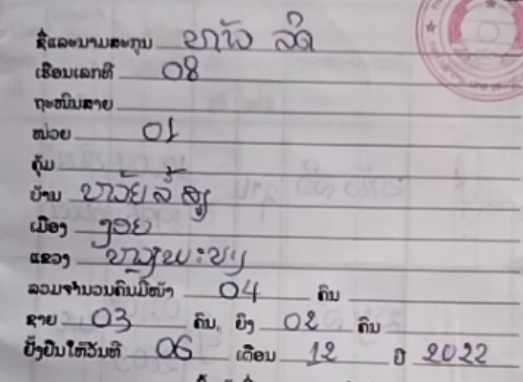 ຊື່ແລະນາມສະກຸນ
ເຮືອນເລກທີ 08
ຖະໜົນສາຍ
ໜ່ວຍ 01
ຄຸ້ມ
ບ້ານ
ເມືອງ ງອຍ
ແຂວງ
ລວມຈຳນວນຄົນມີໜ້າ 04 ຄົນ
ຊາຍ 03 ຄົນ, ຍິງ 02 ຄົນ
ຢັ້ງຢືນໃຫ້ວັນທີ 06 ເດືອນ 12 ປີ 2022